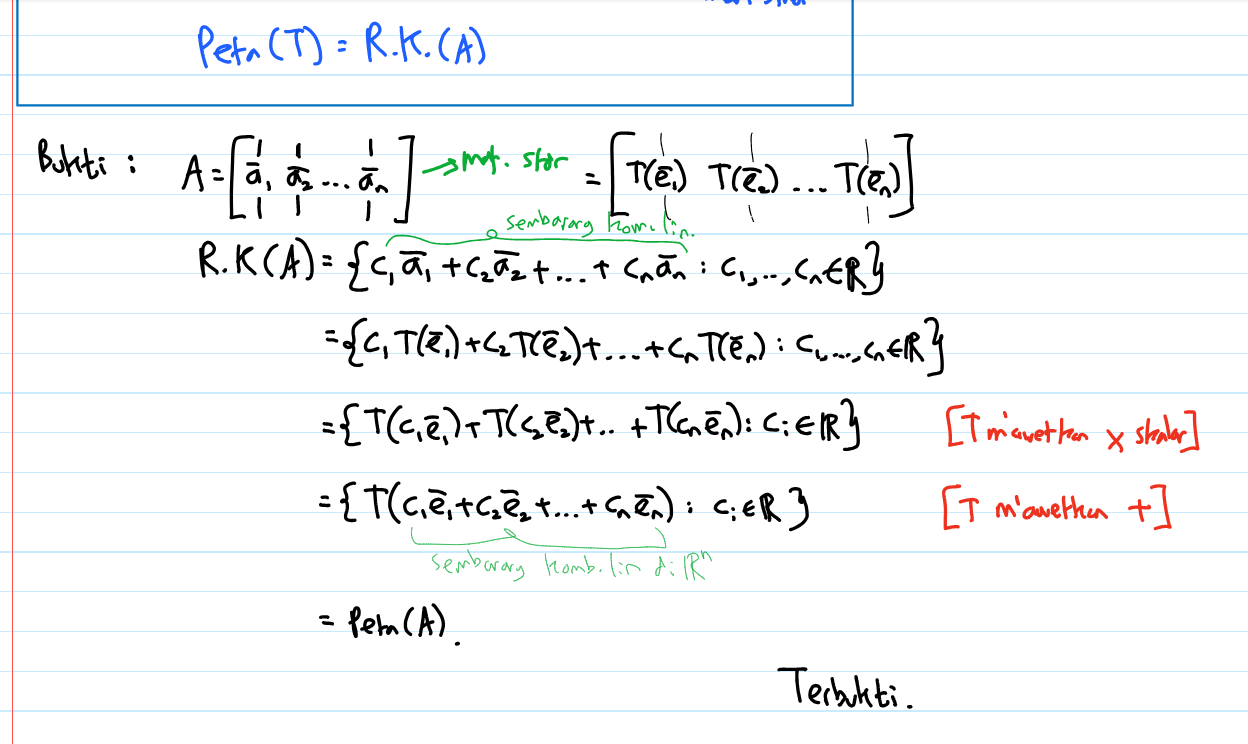 Peta(T) = R.K.(A)
Bukti : A = [ā₁ ā₂ ... āₙ] → mat. stdr = [T(ē₁) T(ē₂) ... T(ēₙ)]
sembarang kom. lin.
R.K(A) = {c₁ā₁ + c₂ā₂ + ... + cₙāₙ : c₁, .., cₙ ∈ ℝ}
= {c₁T(ē₁) + c₂T(ē₂) + ... + cₙT(ēₙ) : c₁, ..., cₙ ∈ ℝ}
= {T(c₁ē₁) + T(c₂ē₂) + .. + T(cₙēₙ) : cᵢ ∈ ℝ} [T m'awetkan × skalar]
= {T(c₁ē₁ + c₂ē₂ + ... + cₙēₙ) : cᵢ ∈ ℝ} [T m'awetkan +]
sembarang komb. lin di ℝⁿ
= Peta(A).
Terbukti.